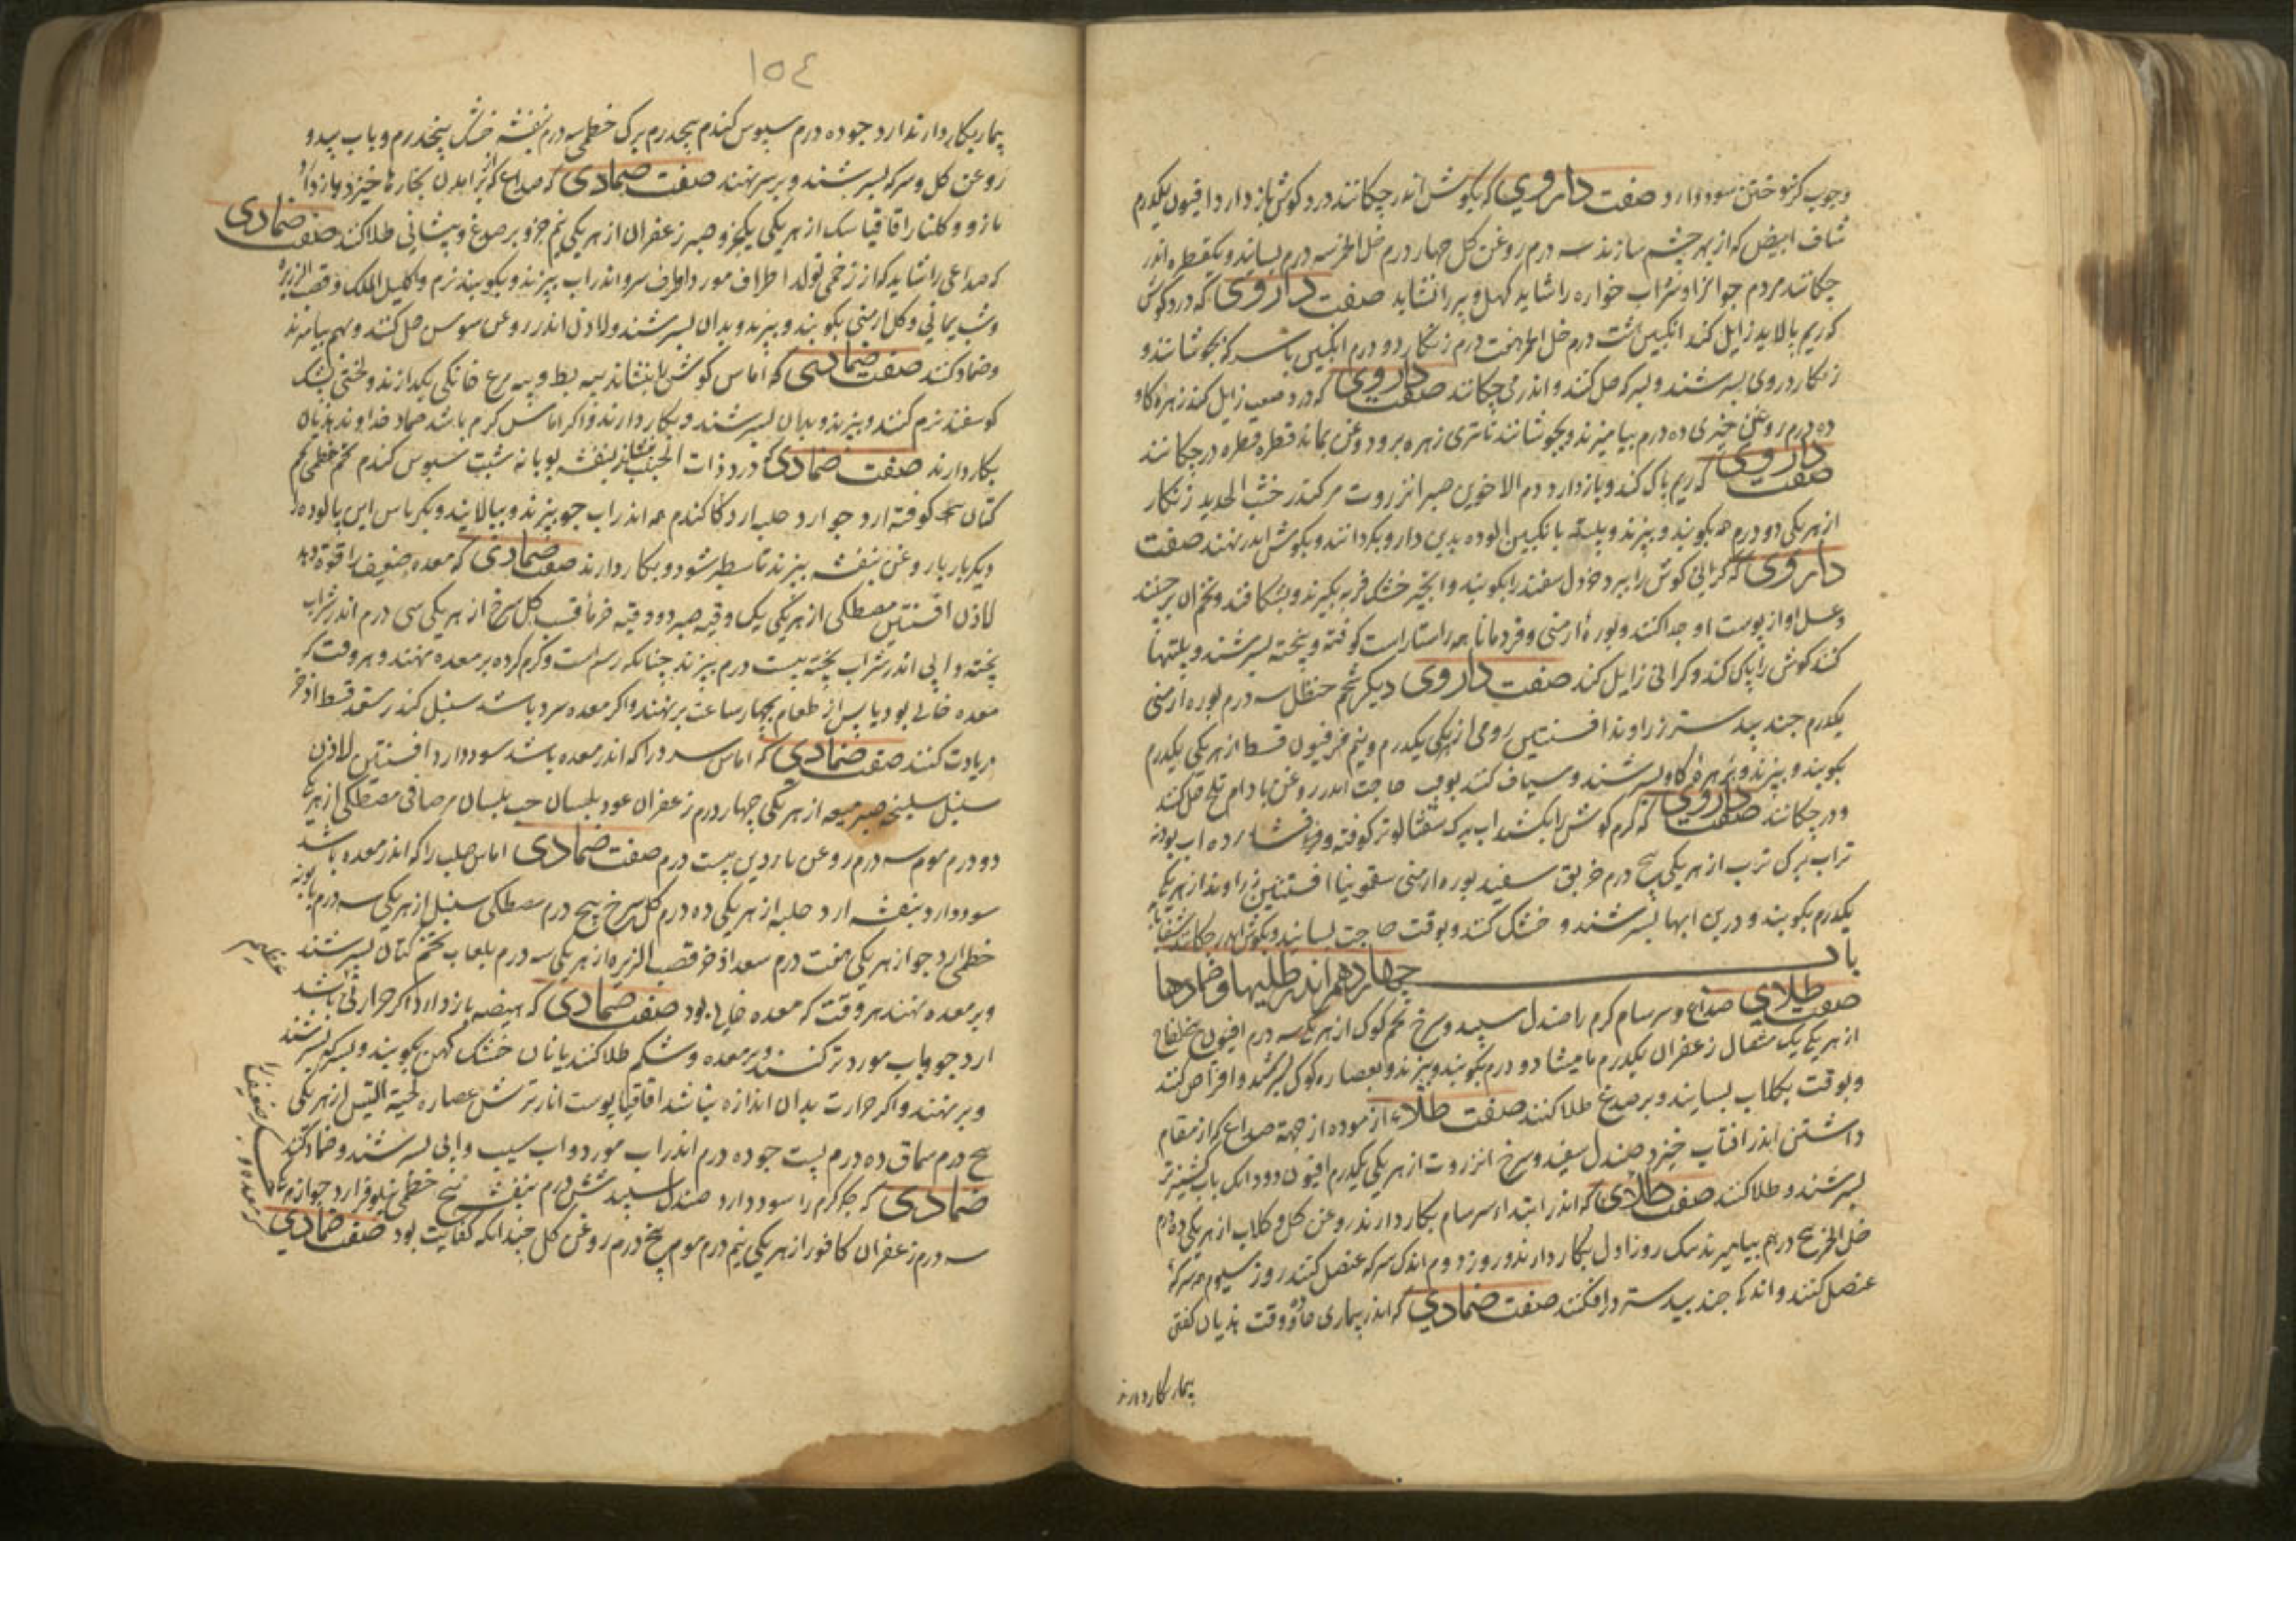 صفت داروی که بکوش اندر چکانند درد کوش باز دارد افیون یکدرم
شاف ابیض که از بهر چشم سازند سه درم روغن کل چهار درم خل الخمر سه درم بسایند و یکقطره اندر
چکانند مردم جوانرا و شراب خواره را شاید کهل و پیر را نشاید صفت داروی که درد کوش
که ریم پالاید زایل کند انکبین هشت درم خل الخمر هفت درم زنکار دو درم انکبین با سرکه بجوشانند و
زنکار در وی بسرشند و بسرکه حل کنند و اندر می چکانند صفت داروی که درد صعب زایل کند زهره کاو
ده درم روغن خیری ده درم بیامیزند و بجوشانند تا تری زهره برود و روغن بماند قطره قطره در چکانند
صفت داروی که ریم پاک کند و باز دارد دم الاخوین صبر انزروت مر کندر خبث الحدید زنکار
از هر یکی دو درم همه بکوبند و ببیزند و پلیته بانکبین الوده بدین دارو بکردانند و بکوش اندر نهند صفت
داروی که کرانی کوش را ببرد خردل سفید را بکوبند و انجیر خشک فربه بکیرند و بشکافند و تخم ان برچینند
و عسل او از پوست او جدا کنند و بوره ارمنی و قردمانا همه راستاراست کوفته و بیخته بسرشند و پلیتها
کنند کوش را پاک کند و کرانی زایل کند صفت داروی دیکر شحم حنظل سه درم بوره ارمنی
یکدرم جند بیدستر زراوند افسنتین رومی از هر یکی یکدرم و نیم فرفیون قسط از هر یکی یکدرم
بکوبند و ببیزند و بزهره کاو بسرشند و سیاف کنند بوقت حاجت اندر روغن بادام تلخ حل کنند
و در چکانند صفت داروی که کرم کوش را بکشد اب برک شفتالو تر کوفته و فشارده اب بودنه
تر اب برک ترب از هر یکی پنج درم خربق سفید بوره ارمنی سقمونیا افسنتین زراوند از هر یکی
یکدرم بکوبند و درین ابها بسرشند و خشک کنند و بوقت حاجت بسایند و بکوش اندر چکانند
باب چهاردهم اندر طلیها و ضمادها
صفت طلای صداع و سرسام کرم را صندل سپید و سرخ تخم کوک از هر یکی سه درم افیون بیخ لفاح
از هر یکی یک مثقال زعفران یکدرم مامیثا دو درم بکوبند و ببیزند و بعصاره کوک بسرشند و اقراص کنند
و بوقت بکلاب بسایند و بر صدغ طلا کنند صفت طلاء ازموده از جهة صداع که از مقام
داشتن اندر افتاب خیزد صندل سفید و سرخ انزروت از هر یکی یکدرم افیون دو دانک باب کشنیز تر
بسرشند و طلا کنند صفت طلای که اندر ابتداء سرسام بکار دارند روغن کل و کلاب از هر یکی ده درم
خل الخمر پنج درم بیامیزند یک روز اول بکار دارند و روز دوم اندک سرکه عنصل کنند روز سیوم همه سرکه
عنصل کنند و اندکی جند بیدستر در افکنند صفت ضمادی که اندر بیماری حاده وقت هذیان کفتن
بیمار بکار دارند
١٥٤
بیمار بکار دارند ارد جو ده درم سبوس کندم پنجدرم برک خطمی سه درم بنفشه خشک پنجدرم و باب بید و
روغن کل و سرکه بسرشند و بر سر نهند صفت ضمادی که صداع که از بر امدن بخارها خیزد باز دارد
مازو و کلنار اقاقیا سک از هر یکی یکجزو صبر زعفران از هر یکی نیم جزو بر صدغ و پیشانی طلا کنند صفت ضمادی
که صداعی را شاید که از زخمی تولد اطراف مورد و اطراف سرو اندر اب ببزند و بکوبند نرم و اکلیل الملک و قصب الزریره
و شب یمانی و کل ارمنی بکوبند و ببیزند و بدان بسرشند و لادن اندر روغن سوسن حل کنند و بهم بیامیزند
و ضماد کنند صفت ضمادی که اماس کوش را بنشاند پیه بط و پیه مرغ خانکی بکدازند و لختی پشک
کوسفند نرم کنند و ببیزند و بدان بسرشند و بکار دارند و اکر اماس کرم باشد ضماد خداوند هذیان
بکار دارند صفت ضمادی که درد ذات الجنب بنشاند بنفشه بابونه شبت سبوس کندم تخم خطمی تخم
کتان همه کوفته ارد جو ارد حلبه ارد کندم همه اندر اب جو ببزند و بپالایند و بکرباس این پالوده را
دیکر بار با روغن بنفشه ببزند تا سطبر شود و بکار دارند صفت ضمادی که معده ضعیف را قوة دهد
لادن افسنتین مصطکی از هر یکی یک وقیه صبر دو وقیه خرماء قسب کل سرخ از هر یکی سی درم اندر شراب
پخته و ابی اندر شراب پخته بیست درم ببزند چنانکه رسم است و کرم کرده بر معده نهند و هر وقت که
معده خالی بود یا پس از طعام بچهار ساعت بر نهند و اکر معده سرد باشد سنبل کندر سعد قسط اذخر
زیادت کنند صفت ضمادی که اماس سرد را که اندر معده باشد سود دارد افسنتین لادن
سنبل سلیخه صبر میعه از هر یکی چهار درم زعفران عود بلسان حب بلسان مر صافی مصطکی از هر یکی
دو درم موم سه درم روغن ناردین بیست درم صفت ضمادی اماس صلب را که اندر معده باشد
سود دارد بنفشه ارد حلبه از هر یکی ده درم کل سرخ پنج درم مصطکی سنبل از هر یکی سه درم بابونه
خطمی ارد جو از هر یکی هفت درم سعد اذخر قصب الزریره از هر یکی سه درم بلعاب تخم کتان بسرشند
و بر معده نهند هر وقت که معده خالی بود صفت ضمادی که هیضه باز دارد اکر حرارتی باشد
ارد جو باب مورد تر کنند و بر معده و شکم طلا کنند یا نان خشک کهن بکوبند و بسرکه بسرشند
و بر نهند و اکر حرارت بدان اندازه نباشد اقاقیا پوست انار ترش عصاره لحیة التیس از هر یکی
پنج درم سماق ده درم پست جو ده درم اندر اب مورد و اب سیب و ابی بسرشند و ضماد کنند
ضمادی که جکر کرم را سود دارد صندل سپید شش درم بنفشه پنج خطمی نیلوفر ارد جو
سه درم زعفران کافور از هر یکی نیم درم موم پنج درم روغن کل چندانکه کفایت بود صفت ضمادی